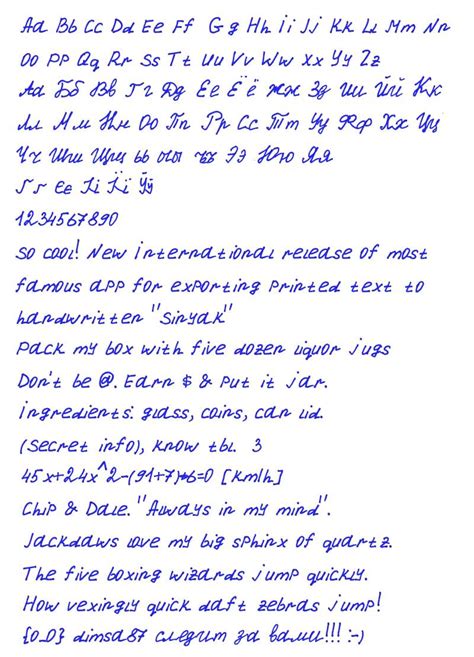 Aa Bb Cc Dd Ee Ff Gg Hh Ii Jj Kk Ll Mm Nn
Oo Pp Qq Rr Ss Tt Uu Vv Ww Xx Yy Zz
Аа Бб Вв Гг Дд Ее Ёё Жж Зз Ии Йй Кк
Лл Мм Нн Оо Пп Рр Сс Тт Уу Фф Хх Цц
Чч Шш Щщ ьь ыы ъъ Ээ Юю Яя
Ґґ Єє Іі Її Ўў
1234567890
So cool! New international release of most
famous app for exporting printed text to
handwritten "Sinyak"
Pack my box with five dozen liquor jugs
Don't be @. Earn $ & put it jar.
Ingredients: glass, coins, can lid.
(Secret info), know tbl. 3
45x+24x^2-(91+7)*6=0 [km/h]
Chip & Dale. "Always in my mind".
Jackdaws love my big sphinx of quartz.
The five boxing wizards jump quickly.
How vexingly quick daft zebras jump!
{0_0} dimsa87 следит за вами!!! :-)